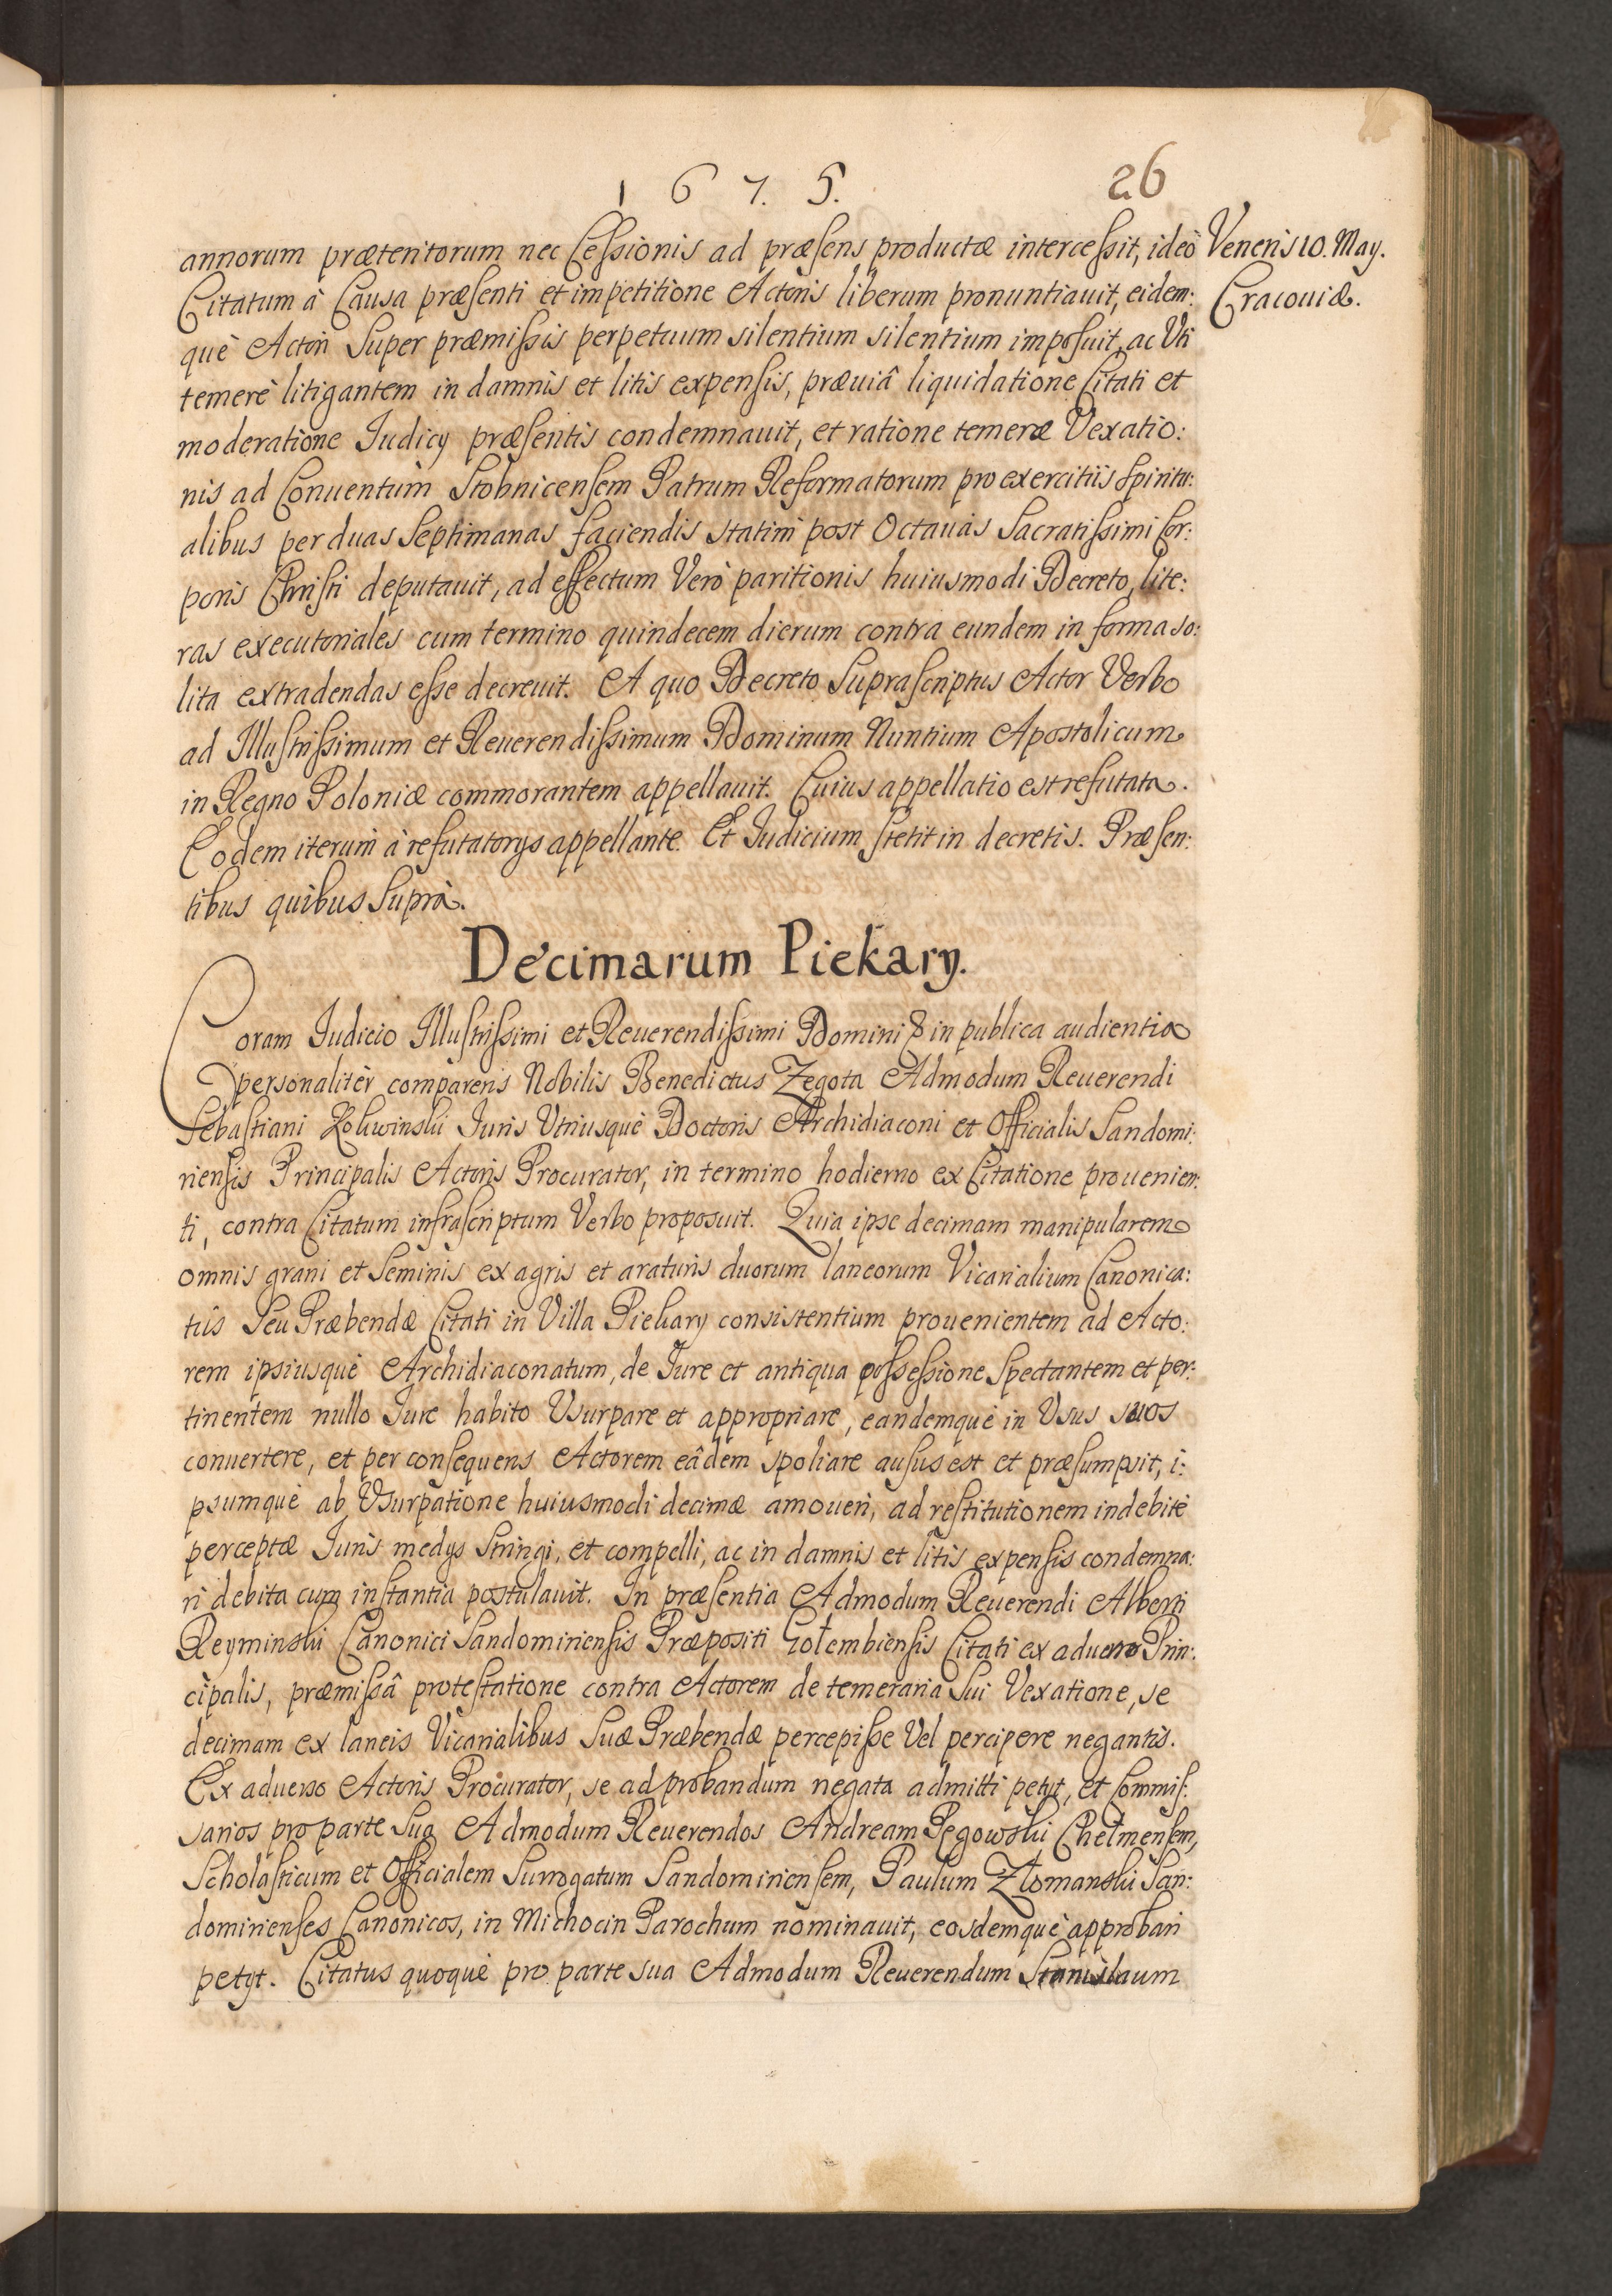 1 6 7. 5.
26
Veneris 10. May.
Cracouiæ.
annorum præteritorum nec Cessionis ad præsens productæ intercessit, ideò
Citatum à Causa præsenti et impetitione Actoris liberum pronuntiauit, eidem:
què Actori Super præmissis perpetuum silentium silentium imposuit, ac Uti
temerè litigantem in damnis et litis expensis, præuiâ liquidatione Citati et
moderatione Iudicy præsentis condemnauit, et ratione temeræ Vexatio:
nis ad Conuentum Stobnicensem Patrum Reformatorum pro exercitiis Spiritu:
alibus per duas Septimanas faciendis statim post Octauas Sacratissimi Cor:
poris Christi deputauit, ad effectum Verò paritionis huiusmodi Decreto, lite:
ras executoriales cum termino quindecem dierum contra eundem in forma so:
lita extradendas esse decreuit. A quo Decreto Suprascriptus Actor Verbo
ad Illustrissimum et Reuerendissimum Dominum Nuntium Apostolicum
in Regno Poloniæ commorantem appellauit. Cuius appellatio est refutata.
Eodem iterum à refutatorys appellante. Et Iudicium stetit in decretis. Præsen:
tibus quibus Suprà.
Decimarum Piekary.
Coram Iudicio Illustrissimi et Reuerendissimi Domini & in publica audientia
personalitèr comparens Nobilis Benedictus Zegota Admodum Reuerendi
Sebastiani Kokwinski Iuris Utriusquè Doctoris Archidiaconi et Officialis Sandomi:
riensis Principalis Actoris Procurator, in termino hodierno ex Citatione prouenien:
ti, contra Citatum infrascriptum Verbo proposuit. Quia ipse decimam manipularem
omnis grani et Seminis ex agris et araturis duorum laneorum Vicarialium Canonica:
tûs Seu Præbendæ Citati in Villa Piekary consistentium prouenientem ad Acto:
rem ipsiusquè Archidiaconatum, de Iure et antiqua possessione Spectantem et per:
tinentem nullo Iure habito Usurpare et appropriare, eandemquè in Usus suos
conuertere, et per consequens Actorem eâdem spoliare ausus est et præsumpsit, i:
psumquè ab Usurpatione huiusmodi decimæ amoueri, ad restitutionem indebitè
perceptæ Iuris medys Stringi, et compelli, ac in damnis et litis expensis condemna:
ri debita cum instantia postulauit. In præsentia Admodum Reuerendi Alberti
Reyminski Canonici Sandomiriensis Præpositi Gołembiensis Citati ex aduerso Prin:
cipalis, præmissâ protestatione contra Actorem de temeraria Sui Vexatione, se
decimam ex laneis Vicarialibus Suæ Præbendæ percepisse Vel percipere negantis.
Ex aduerso Actoris Procurator, se ad probandum negata admitti petyt, et Commis:
sarios pro parte Sua Admodum Reuerendos Andream Pęgowski Chełmensem,
Scholasticum et Officialem Surrogatum Sandomiriensem, Paulum Złomanski San:
domirienses Canonicos, in Michocin Parochum nominauit, eosdemquè approbari
petyt. Citatus quoquè pro parte sua Admodum Reuerendum Stanislaum